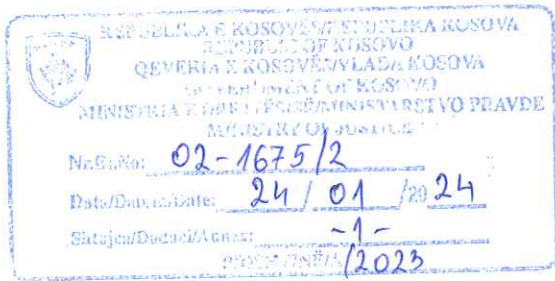 REPUBLIKA E KOSOVËS/REPUBLIKA KOSOVA
REPUBLIC OF KOSOVO
QEVERIA E KOSOVËS/VLADA KOSOVA
GOVERNMENT OF KOSOVO
MINISTRIA E DREJTËSISË/MINISTARSTVO PRAVDE
MINISTRY OF JUSTICE
Nr./Br./No: 02-1675/2
Data/Datum/Date: 24 / 01 /20 24
Shtojca/Dodaci/Annex: -1-
PRISHTINË/A /2023